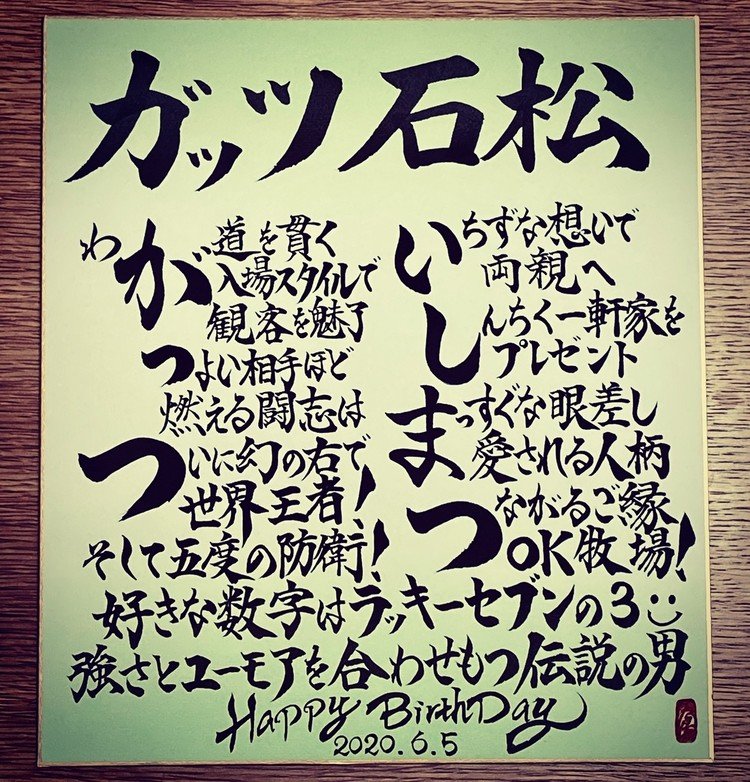 ガッツ石松
わが道を貫く
入場スタイルで
観客を魅了
つよい相手ほど
燃える闘志は
ついに幻の右で
世界王者!
そして五度の防衛!
いちずな想いで
両親へ
しんちく一軒家を
プレゼント
まっすぐな眼差し
愛される人柄
つながるご縁
OK牧場!
好きな数字はラッキーセブンの3
強さとユーモアを合わせもつ伝説の男
Happy BirthDay
2020.6.5